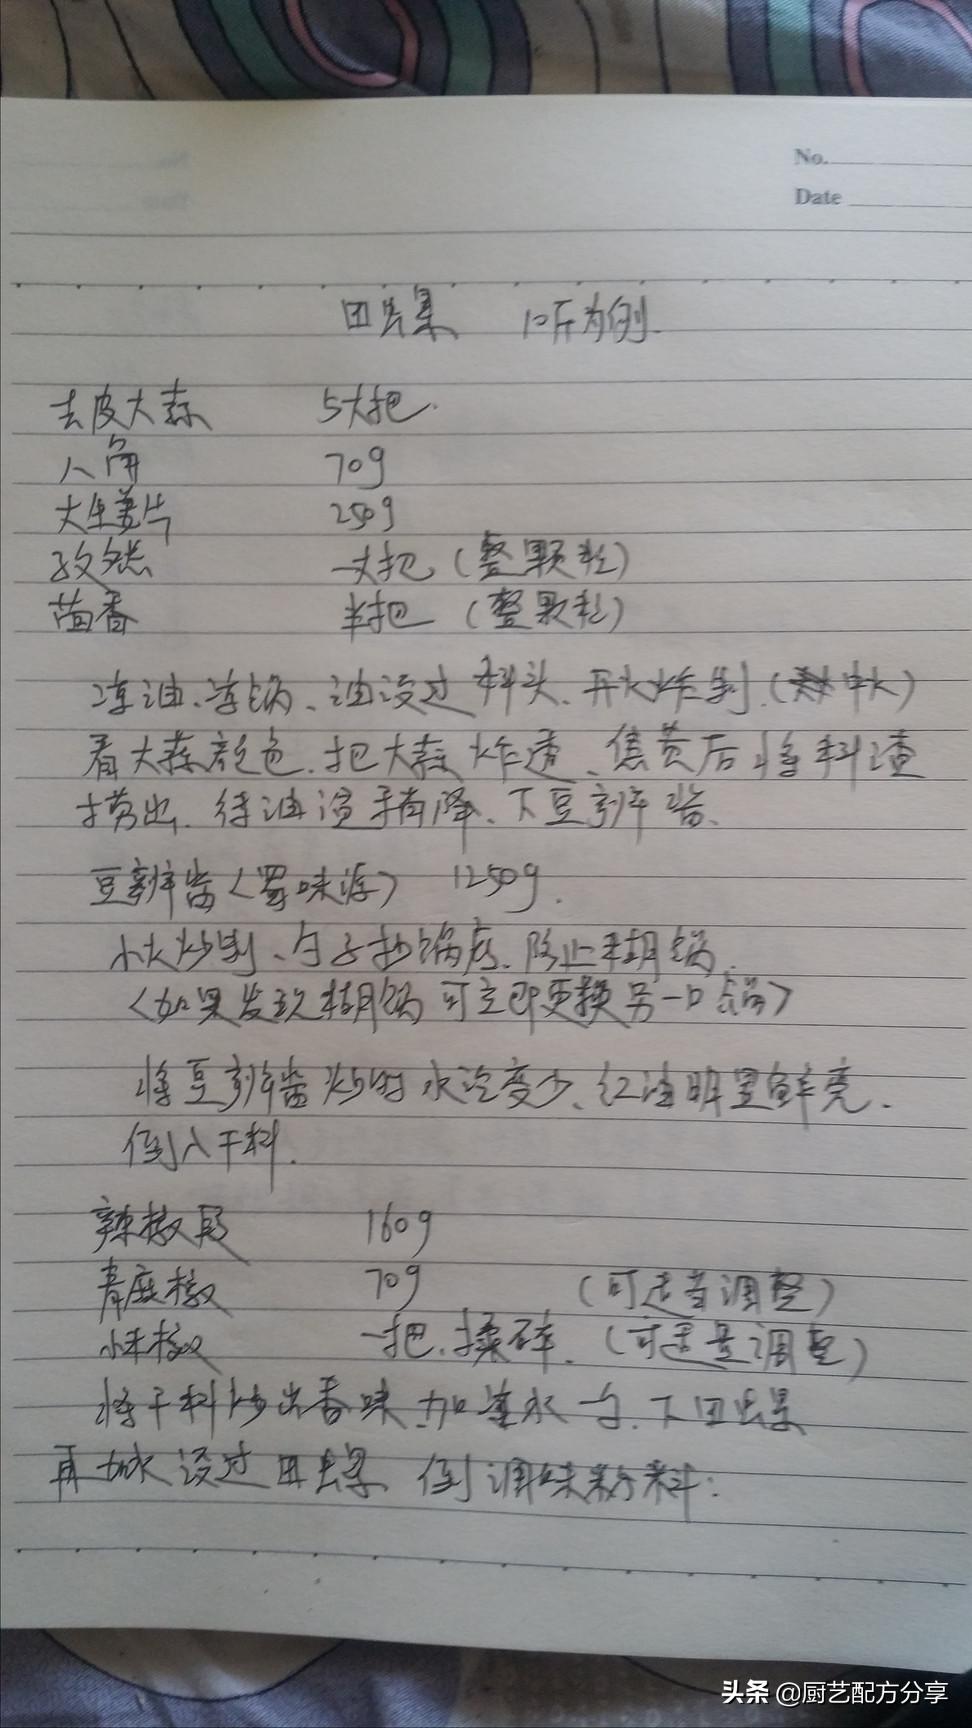 No.
Date
田螺 10斤为例
去皮大蒜 5大把
八角 70g
大生姜片 250g
孜然 一大把（整颗粒）
茴香 半把（整颗粒）
冻油、冻锅、油没过料头、开火炸制（中火）
看大蒜颜色、把大蒜炸透、焦黄后将料渣
捞出、待油温稍降、下豆瓣酱、
豆瓣酱（蜀味源） 1250g.
小火炒制、勺子抄锅底、防止糊锅
（如果发现糊锅可立即更换另一口锅）
将豆瓣酱炒的水汽变少、红油明显鲜亮、
倒入干料.
辣椒段 160g
青麻椒 70g （可适当调整）
小米椒 一把、揉碎.（可适量调整）
将干料炒出香味、加凉水一勺、下田螺
再加水没过田螺 倒调味粉料：
头条 @厨艺配方分享